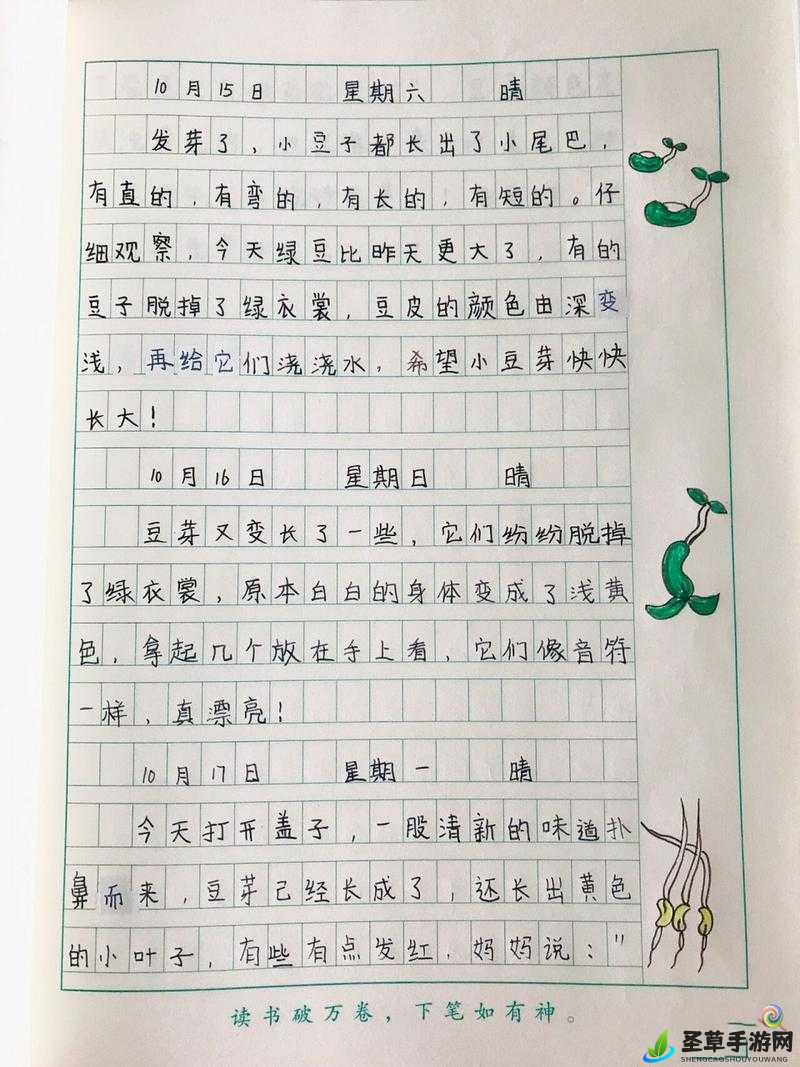 10月15日 星期六 晴
发芽了,小豆子都长出了小尾巴,
有直的,有弯的,有长的,有短的。仔
细观察,今天绿豆比昨天更大了,有的
豆子脱掉了绿衣裳,豆皮的颜色由深变
浅,再给它们浇浇水,希望小豆芽快快
长大!
10月16日 星期日 晴
豆芽又变长了一些,它们纷纷脱掉
了绿衣裳,原本白白的身体变成了浅黄
色,拿起几个放在手上看,它们像音符
一样,真漂亮!
10月17日 星期一 晴
今天打开盖子,一股清新的味道扑
鼻而来,豆芽已经长成了,还长出黄色
的小叶子,有些有点发红,妈妈说:"
读书破万卷,下笔如有神。
圣草手游网
SHENGCAOSHOUYOUWANG